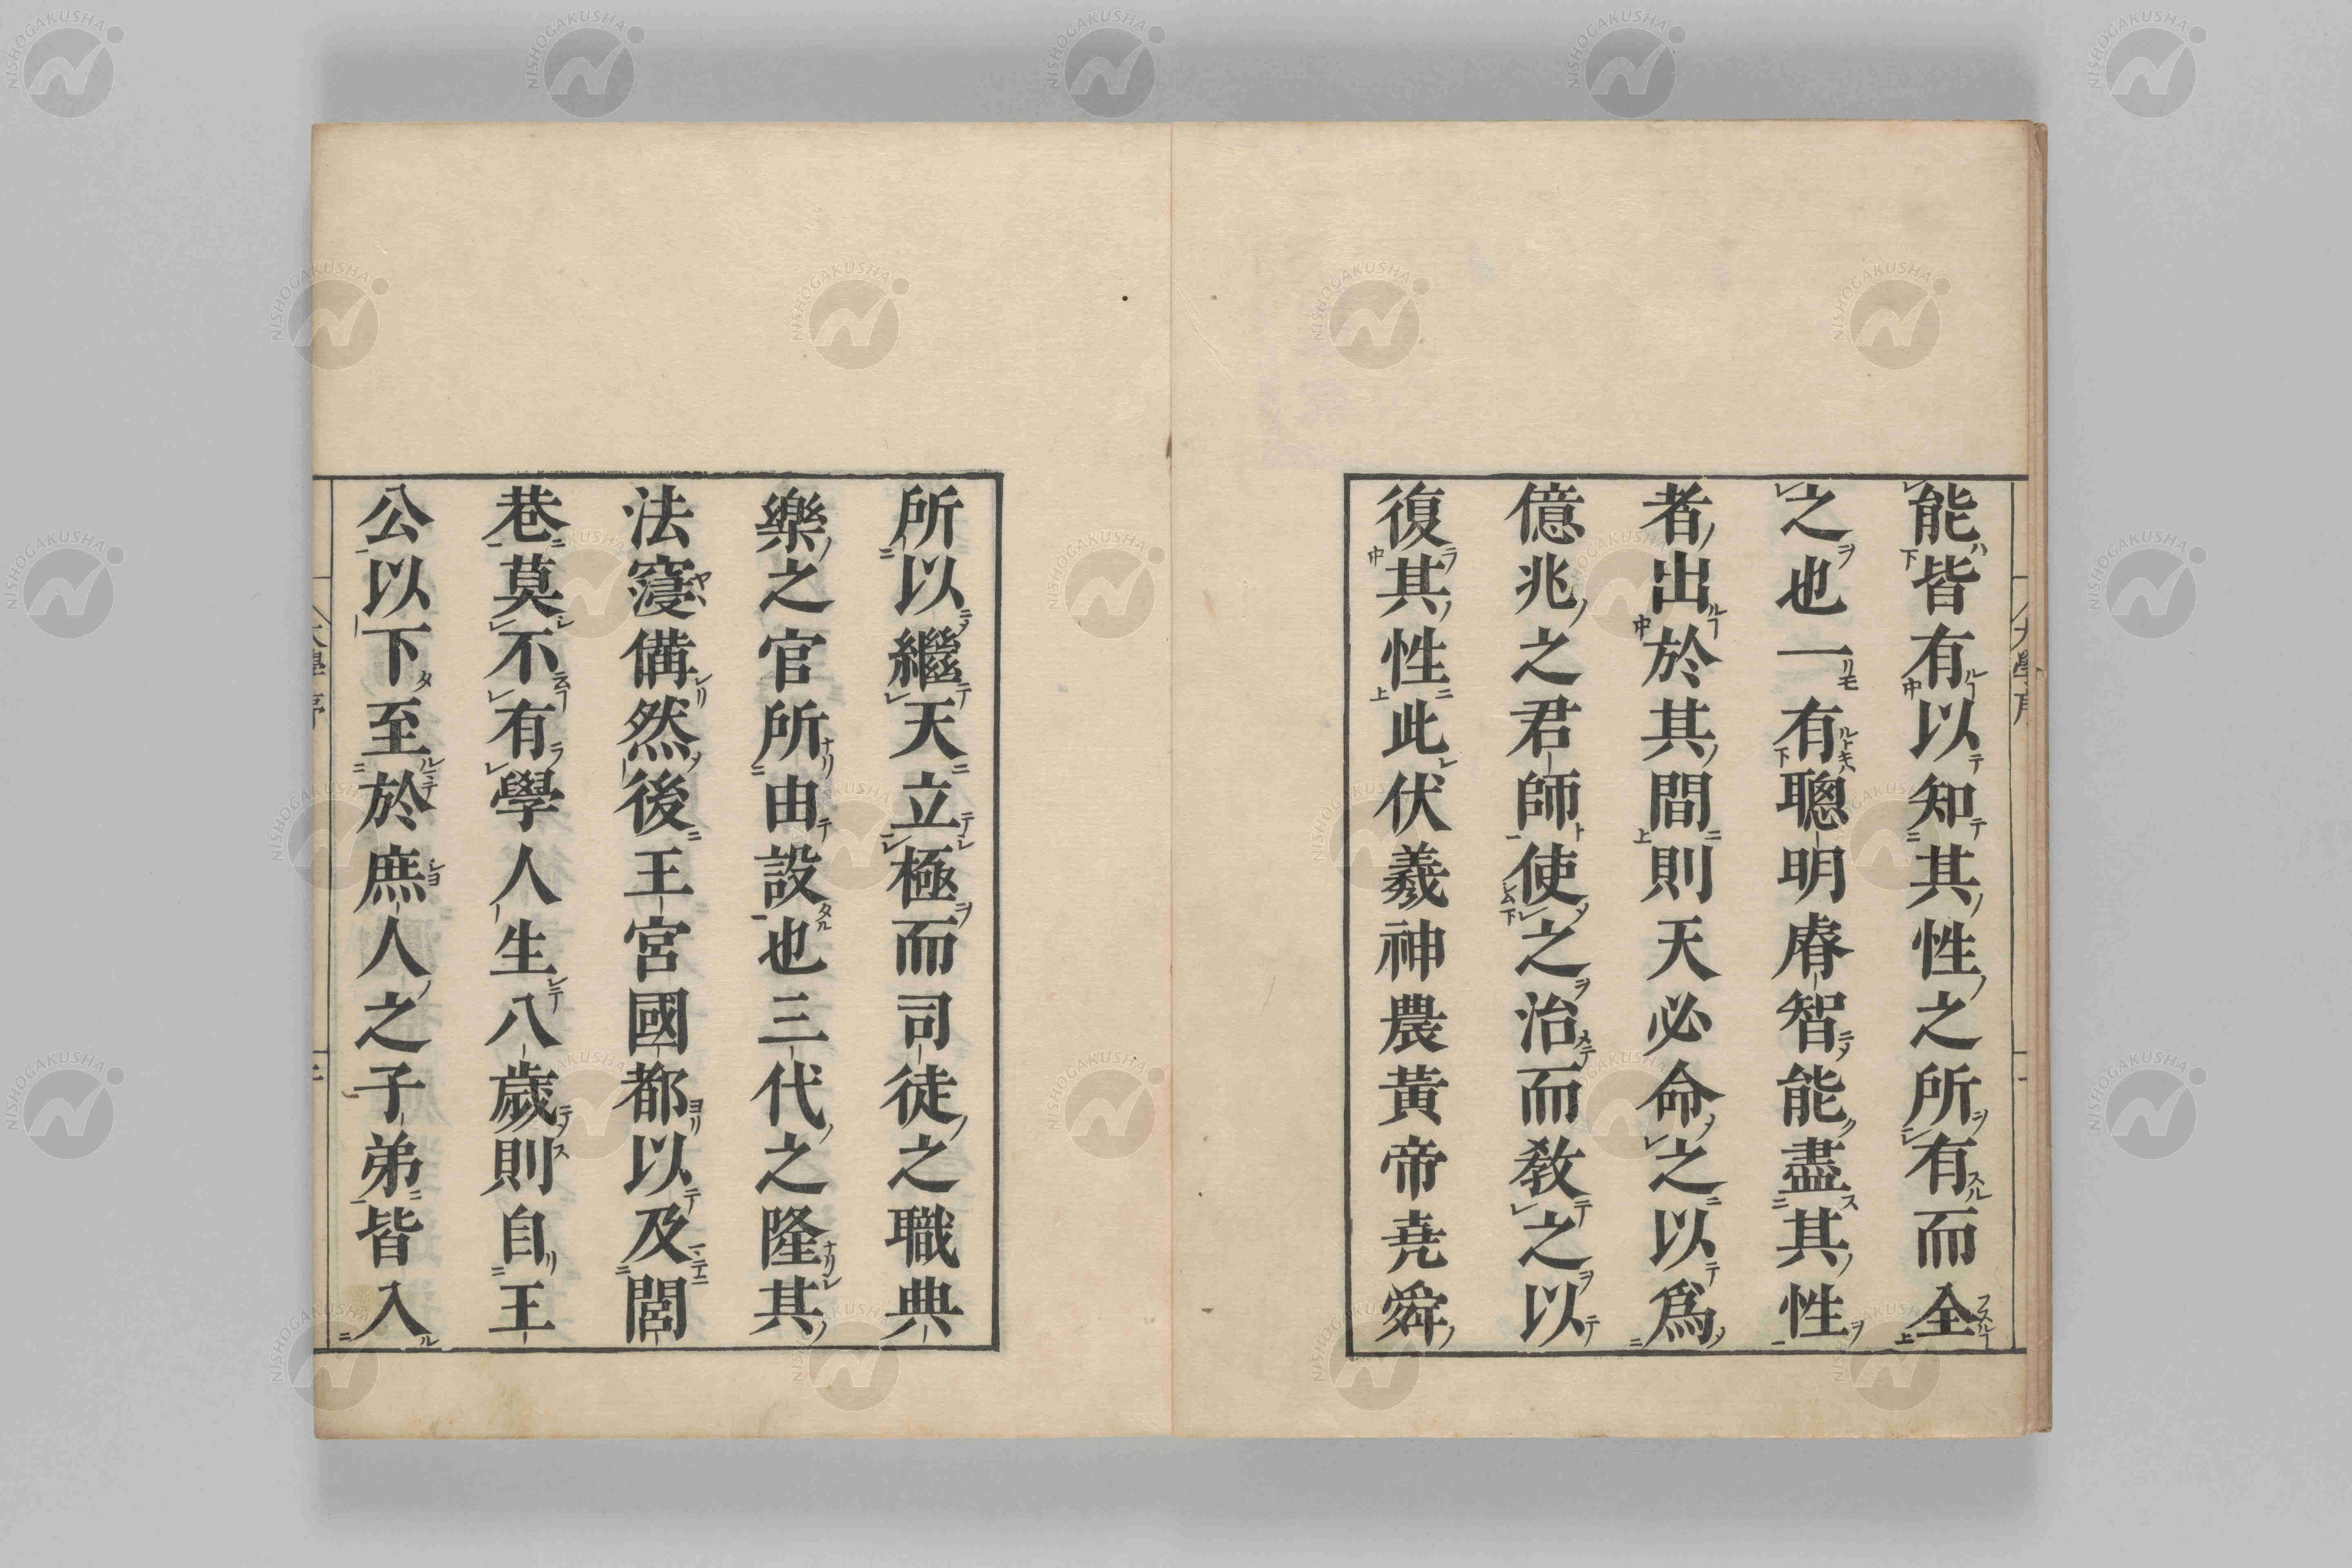 能皆有以知其性之所有而全
之也一有聰明睿智能盡其性
者出於其間則天必命之以爲
億兆之君師使之治而教之以
復其性此伏羲神農黃帝尭舜
所以繼天立極而司徒之職典
樂之官所由設也三代之隆其
法寖備然後王宮國都以及閭
巷莫不有學人生八歳則自王
公以下至於庶人之子弟皆入
NISHOGAKUSHA